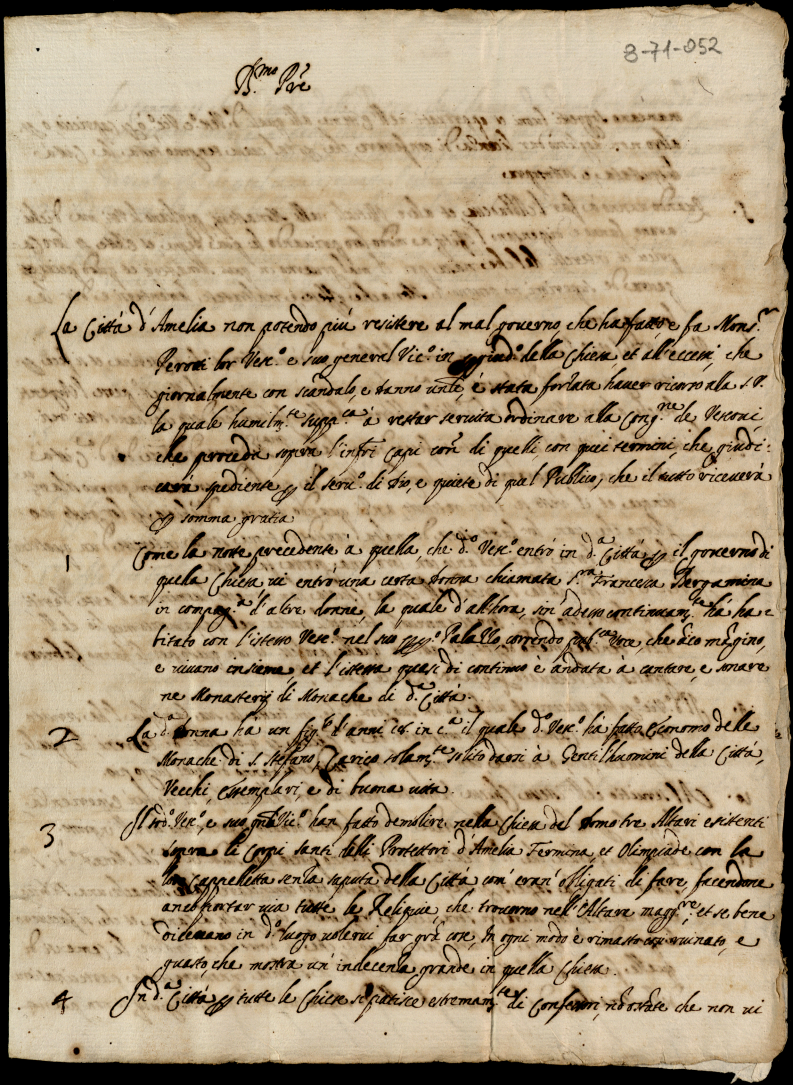 8-71-052
B.mo Pre
La Città d'Amelia non potendo più resistere al mal governo, che ha fatto, e fa Mons.r
lor Vesc.o e suo general Vic.o in della Chiesa, et all'eccessi, che
giornalmente con scandalo, e danno è stata forzata haver ricorso alla S. V.
la quale humilm.te supp.ca à restar servita ordinare alla Cong.ne de Vescovi
che proceda sopra l'infri capi con di quelli con quei termini, che giudi-
carà spediente il serv.o di Dio, e quiete di quel Publico, che il tutto riceverà
somma gratia
1 Come la notte precedente à quella, che d.o Vesc.o entrò in d.a Città il governo di
quella Chiesa vi entrò una certa donna chiamata Francesca Bergamina
in compag.a d'altre donne, la quale d'all'hora, sin' adesso continuam.te hà ha-
bitato con l'istesso Vesc.o nel suo Palazzo, correndo voce, che
e vivano insieme, et l'istessa quasi di continuo è andata à cantare, e sonare
ne Monasterij di Monache di d.a Città.
2 La d.a donna hà un d'anni in c.a il quale d.o Vesc.o hà fatto Economo delle
Monache di S. Stefano, Carico solam.te solito darsi à Gentil'huomini della Città,
Vecchi, essemplari, e di buona vita.
3 Il Vesc.o, e suo Vic.o han fatto demolire nella Chiesa del Domo tre Altari esistenti
sopra li Corpi santi delli Protettori d'Amelia Fermina, et Olimpiade con la
lor Cappelletta senza saputa della Città com' eran' obligati di fare, facendone
anco portar via tutte le Reliquie che trovorno nell'Altare magg.re, et se bene
dicevano in d.o luogo volervi far cose, In ogni modo è rimasto ruinato, e
guasto, che mostra un' indecenza grande in quella Chiesa.
4 In d.a Città tutte le Chiese si patisce estremam.te di Confessori, che non vi